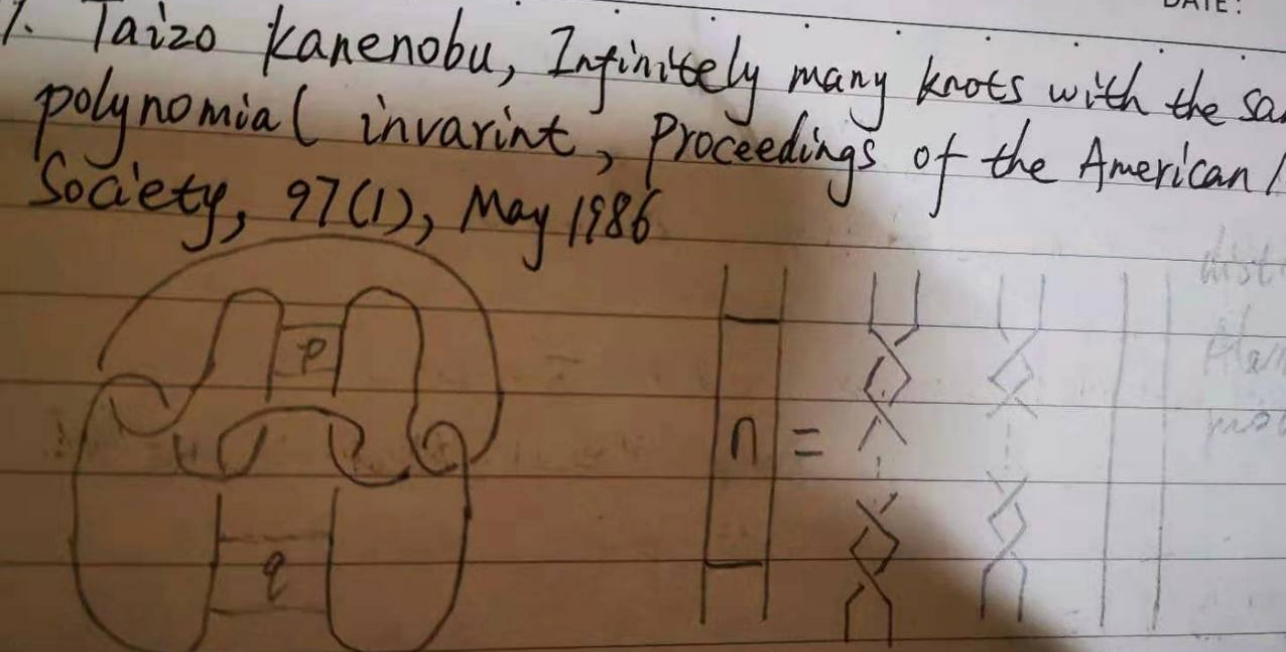 DATE:
1. Taizo Kanenobu, Infinitely many knots with the sa
polynomial invarint, Proceedings of the American
Society, 97(1), May 1986
p
n =
q